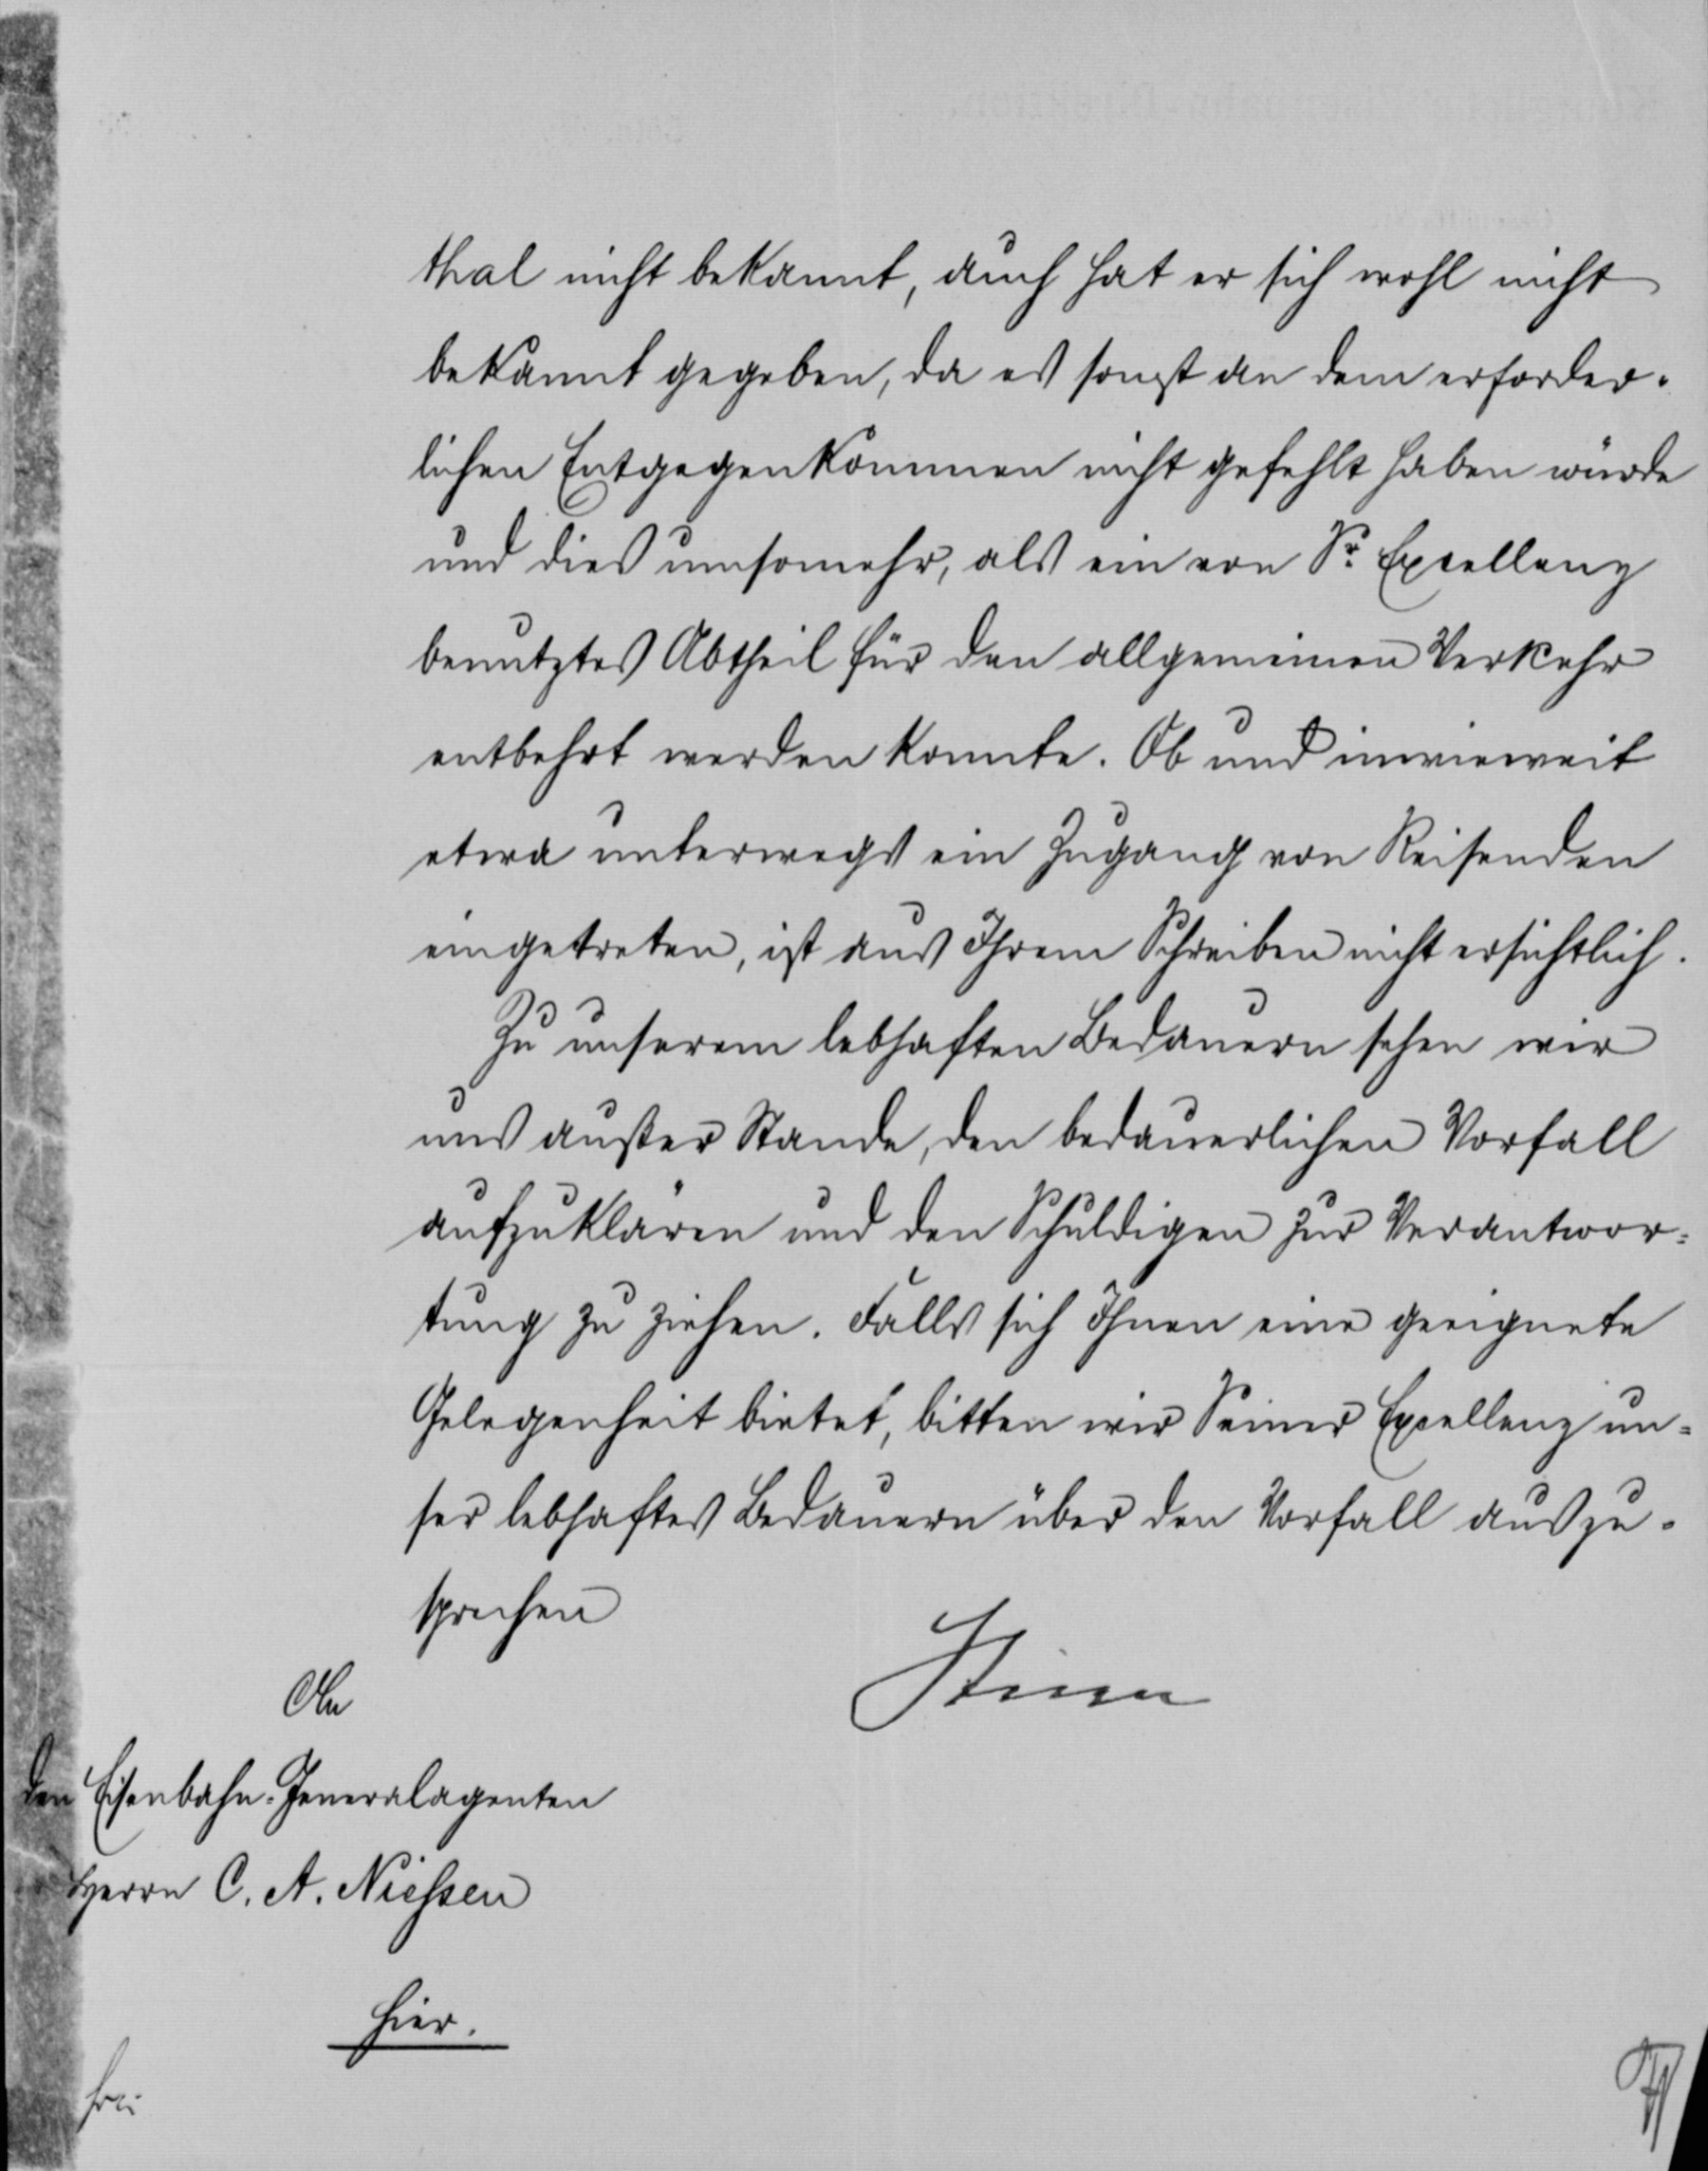 thal nicht bekannt, auch hat er sich wohl nicht
bekannt gegeben, da es sonst an dem erforder-
lichen Entgegenkommen nicht gefehlt haben würde
und dies umsomehr, als ein von Sr. Excellenz
benutztes Abtheil für den allgemeinen Verkehr
entbehrt werden konnte. Ob und inwieweit
etwa unterwegs ein Zugang von Reisenden
eingetreten, ist aus Ihrem Schreiben nicht ersichtlich.
Zu unserem lebhaften Bedauern sehen wir
uns außer Stande, den bedauerlichen Vorfall
aufzuklären und den Schuldigen zur Verantwor-
tung zu ziehen. Falls sich Ihnen eine geeignete
Gelegenheit bietet, bitten wir Seiner Excellenz un-
ser lebhaftes Bedauern über den Vorfall auszu-
sprechen
An
den Eisenbahn-Generalagenten
Herrn C. A. Niessen
hier.